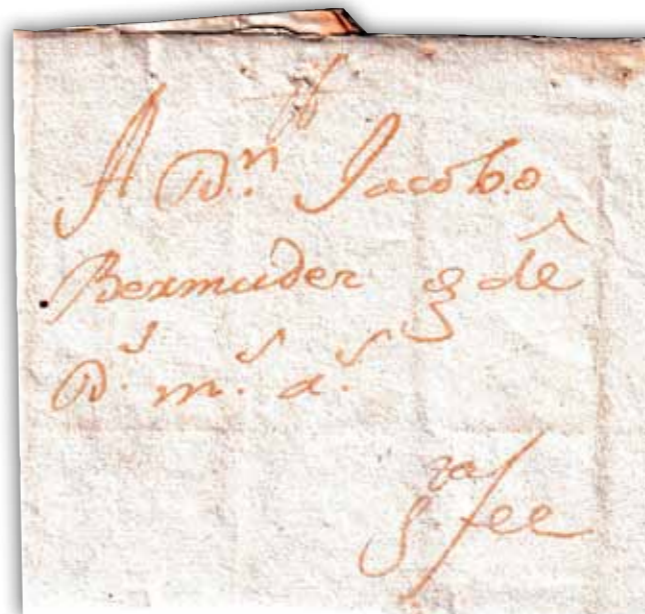 A Dn. Jacobo
Bermudez q dê
Ds. ms. as.
Sta fee